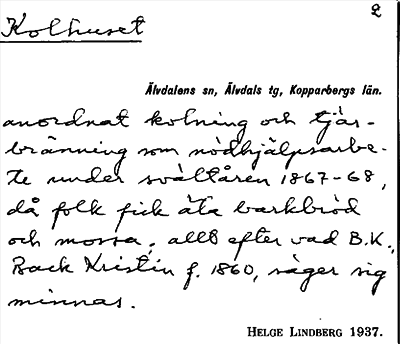 2
Kolhuset
Älvdalens sn, Älvdals tg, Kopparbergs län.
anordnat kolning och tjär-
bränning som nödhjälpsarbe-
te under svältåren 1867-68,
då folk fick äta barkbröd
och mossa, allt efter vad B.K.,
Back Kristin f. 1860, säger sig
minnas.
HELGE LINDBERG 1937.